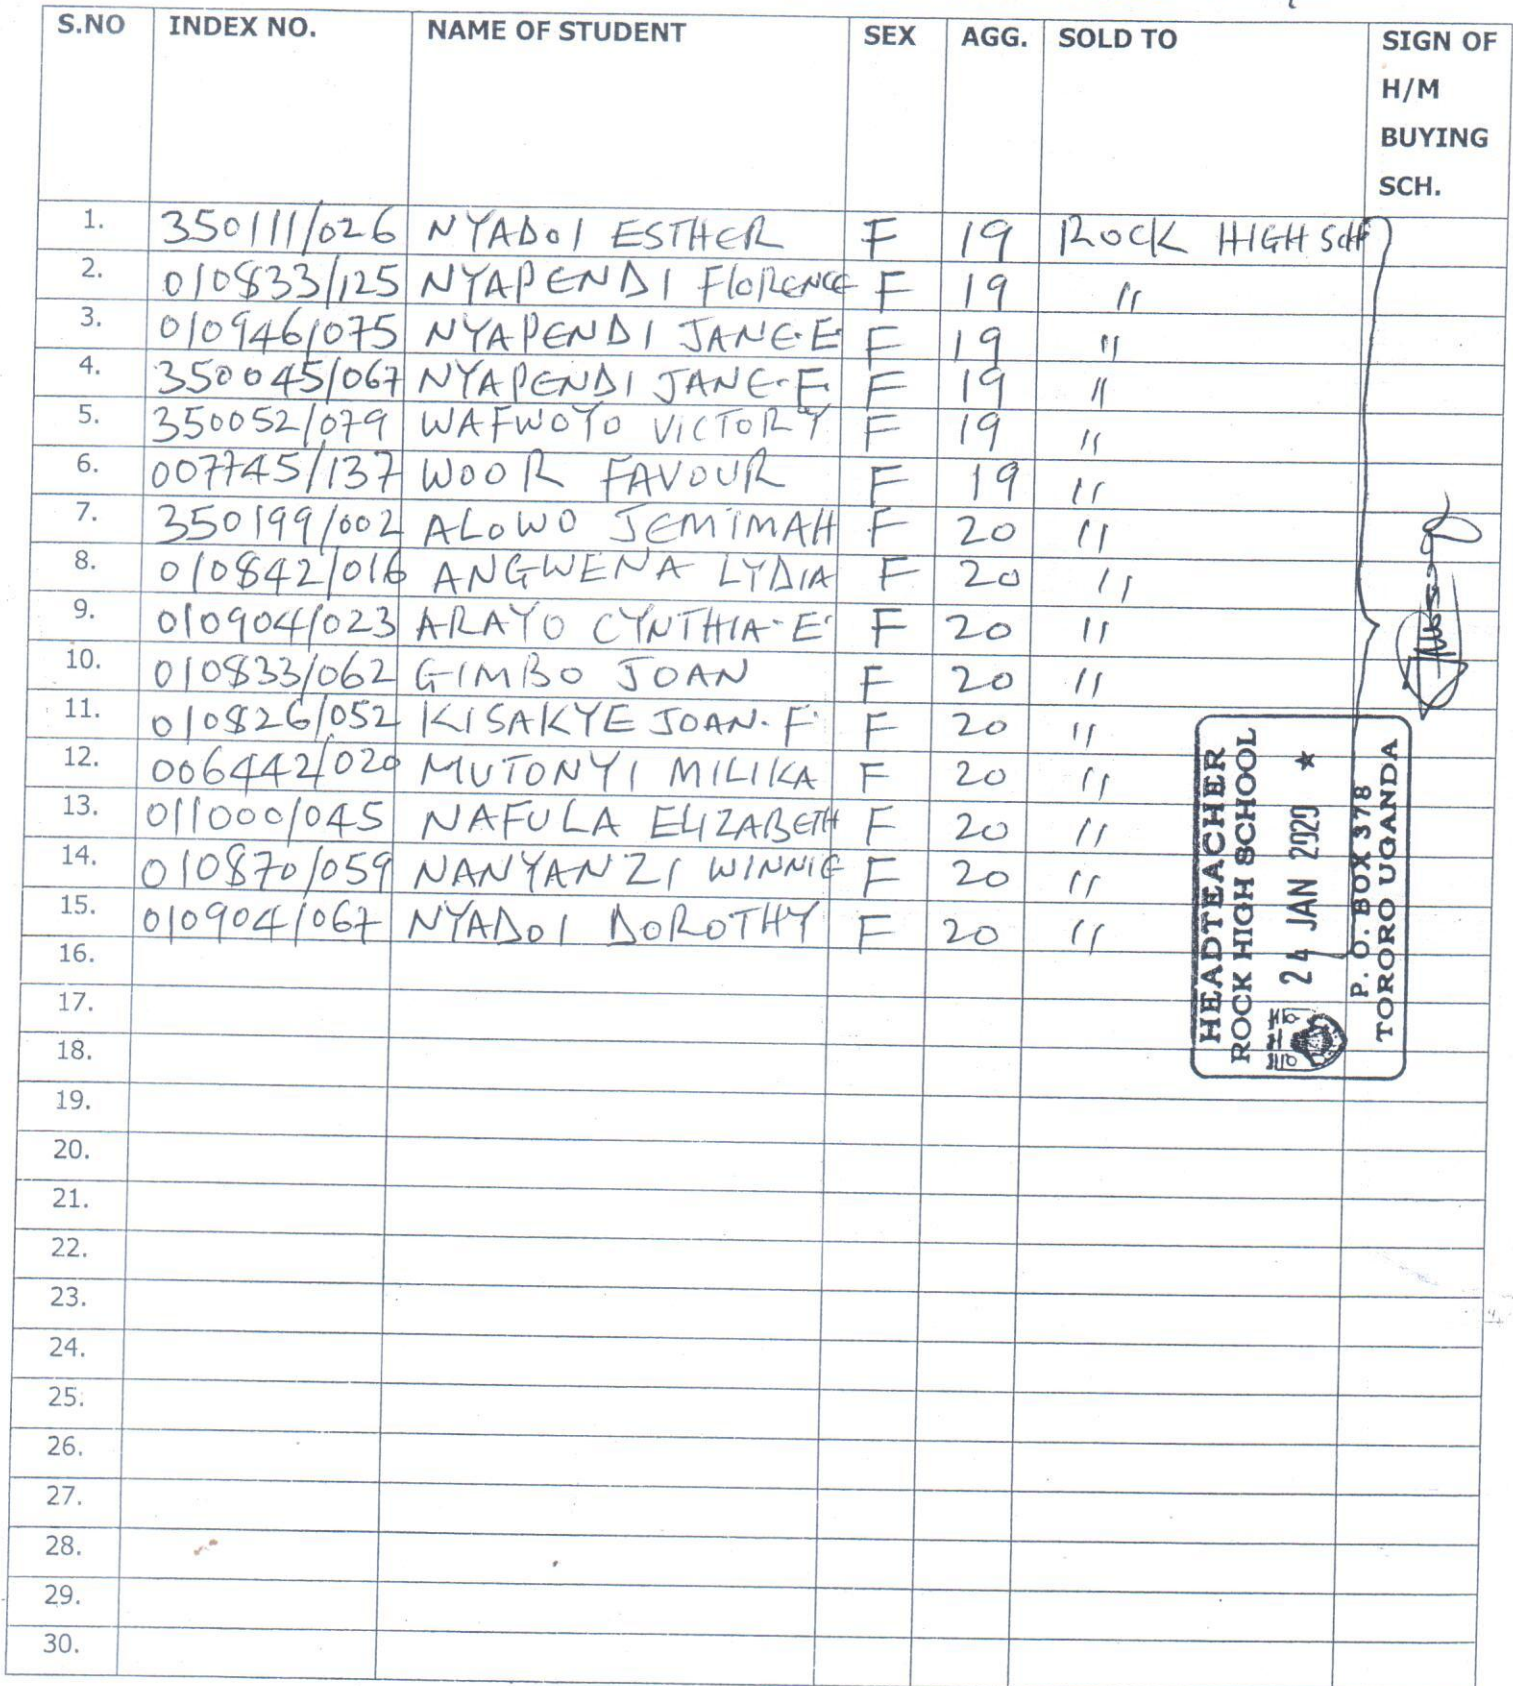 S.NO INDEX NO. NAME OF STUDENT SEX AGG. SOLD TO SIGN OF H/M BUYING SCH.
1. 350111/026 NYADOI ESTHER F 19 ROCK HIGH SCH
2. 010833/125 NYAPENDI FLORENCE F 19 "
3. 010946/075 NYAPENDI JANE.E. F 19 "
4. 350045/067 NYAPENDI JANE.E. F 19 "
5. 350052/079 WAFWOYO VICTORY F 19 "
6. 007745/137 WOOR FAVOUR F 19 "
7. 350199/002 ALOWO JEMIMAH F 20 "
8. 010842/016 ANGWENA LYDIA F 20 "
9. 010904/023 ARAYO CYNTHIA.E. F 20 "
10. 010833/062 GIMBO JOAN F 20 "
11. 010826/052 KISAKYE JOAN.F. F 20 "
12. 006442/020 MUTONYI MILIKA F 20 "
13. 011000/045 NAFULA ELIZABETH F 20 "
14. 010870/059 NANYANZI WINNIE F 20 "
15. 010904/067 NYADOI DOROTHY F 20 "
16.
17.
18.
19.
20.
21.
22.
23.
24.
25.
26.
27.
28.
29.
30.
HEADTEACHER
ROCK HIGH SCHOOL
24 JAN 2020 ★
P. O. BOX 378
TORORO UGANDA